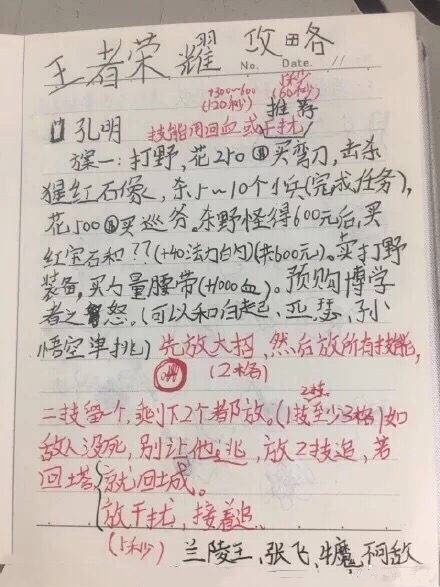 王者荣耀 攻略
No. Date. 11
+300~600 1秒
(120秒) (60秒)
推荐
孔明 技能用回血或干扰
方案一:打野,花250买弯刀,击杀
猩红石像,杀5~10个小兵(完成任务),
花500买巡务。杀野怪得600元后,买
红宝石和??(+40法力白内)(共600元)。卖打野
装备,买力量腰带(+1000血)。预购博学
者之怒。(可以和白起、亚瑟、孙
悟空单挑)先放大招,然后放所有技能,
(2格)
二技留一个,剩下2个都放。(1技至少3格)如
敌人没死,别让他逃,放2技追,若
回塔就回城。
放干扰,接着追。
(5秒) 兰陵王、张飞、牛魔、阿敌